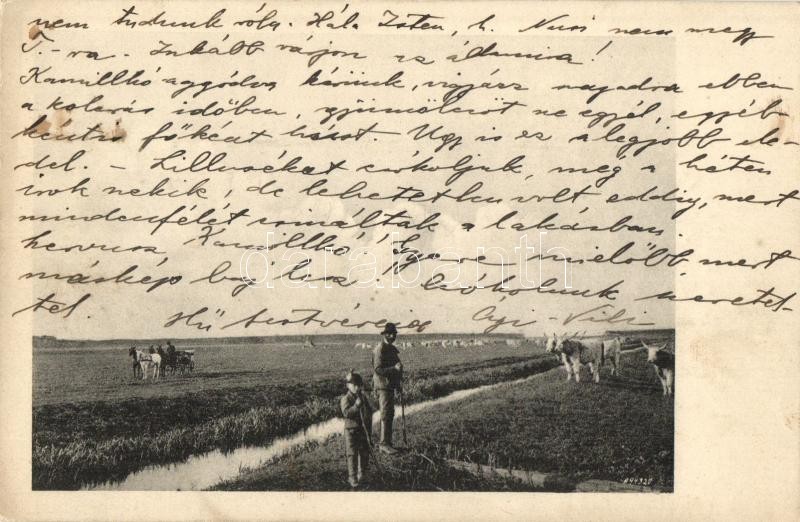 nem tudunk róla. Hála Isten, h. Nusi nem megy
T.-ra. Inkább várjon ez állásra!
Kamillkó aggódva kérünk, vigyázz magadra ebben
a kolerás időben, gyümölcsöt ne egyél, egyéb-
ként főként húst. Úgy is ez a legjobb ele-
del. – Lilluséket csókoljuk, még a héten
írok nekik, de lehetetlen volt eddig, mert
mindenfélét csináltak a lakásban.
Servusz, Kamillkó! Gyere mielőbb mert
másképp baj lesz! Csókolunk szeretet-
tel. Hű testvéreid Vili
darabanth